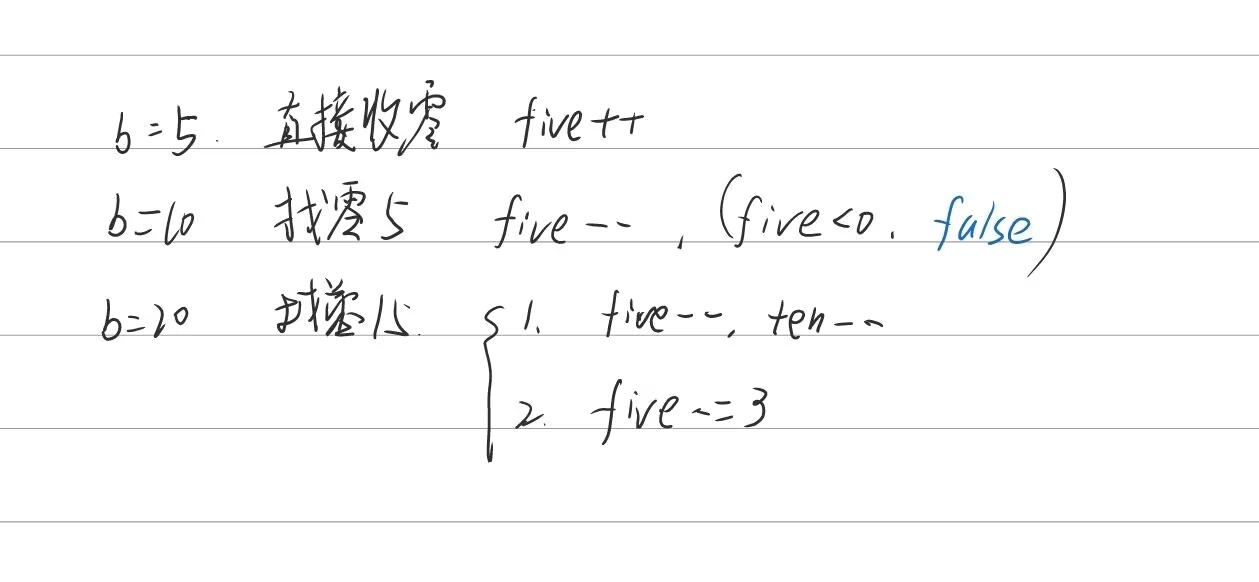 b=5. 直接收零 five++
b=10 找零5 five--, (five<0, false)
b=20 找零15. { 1. five--, ten--
2. five-=3